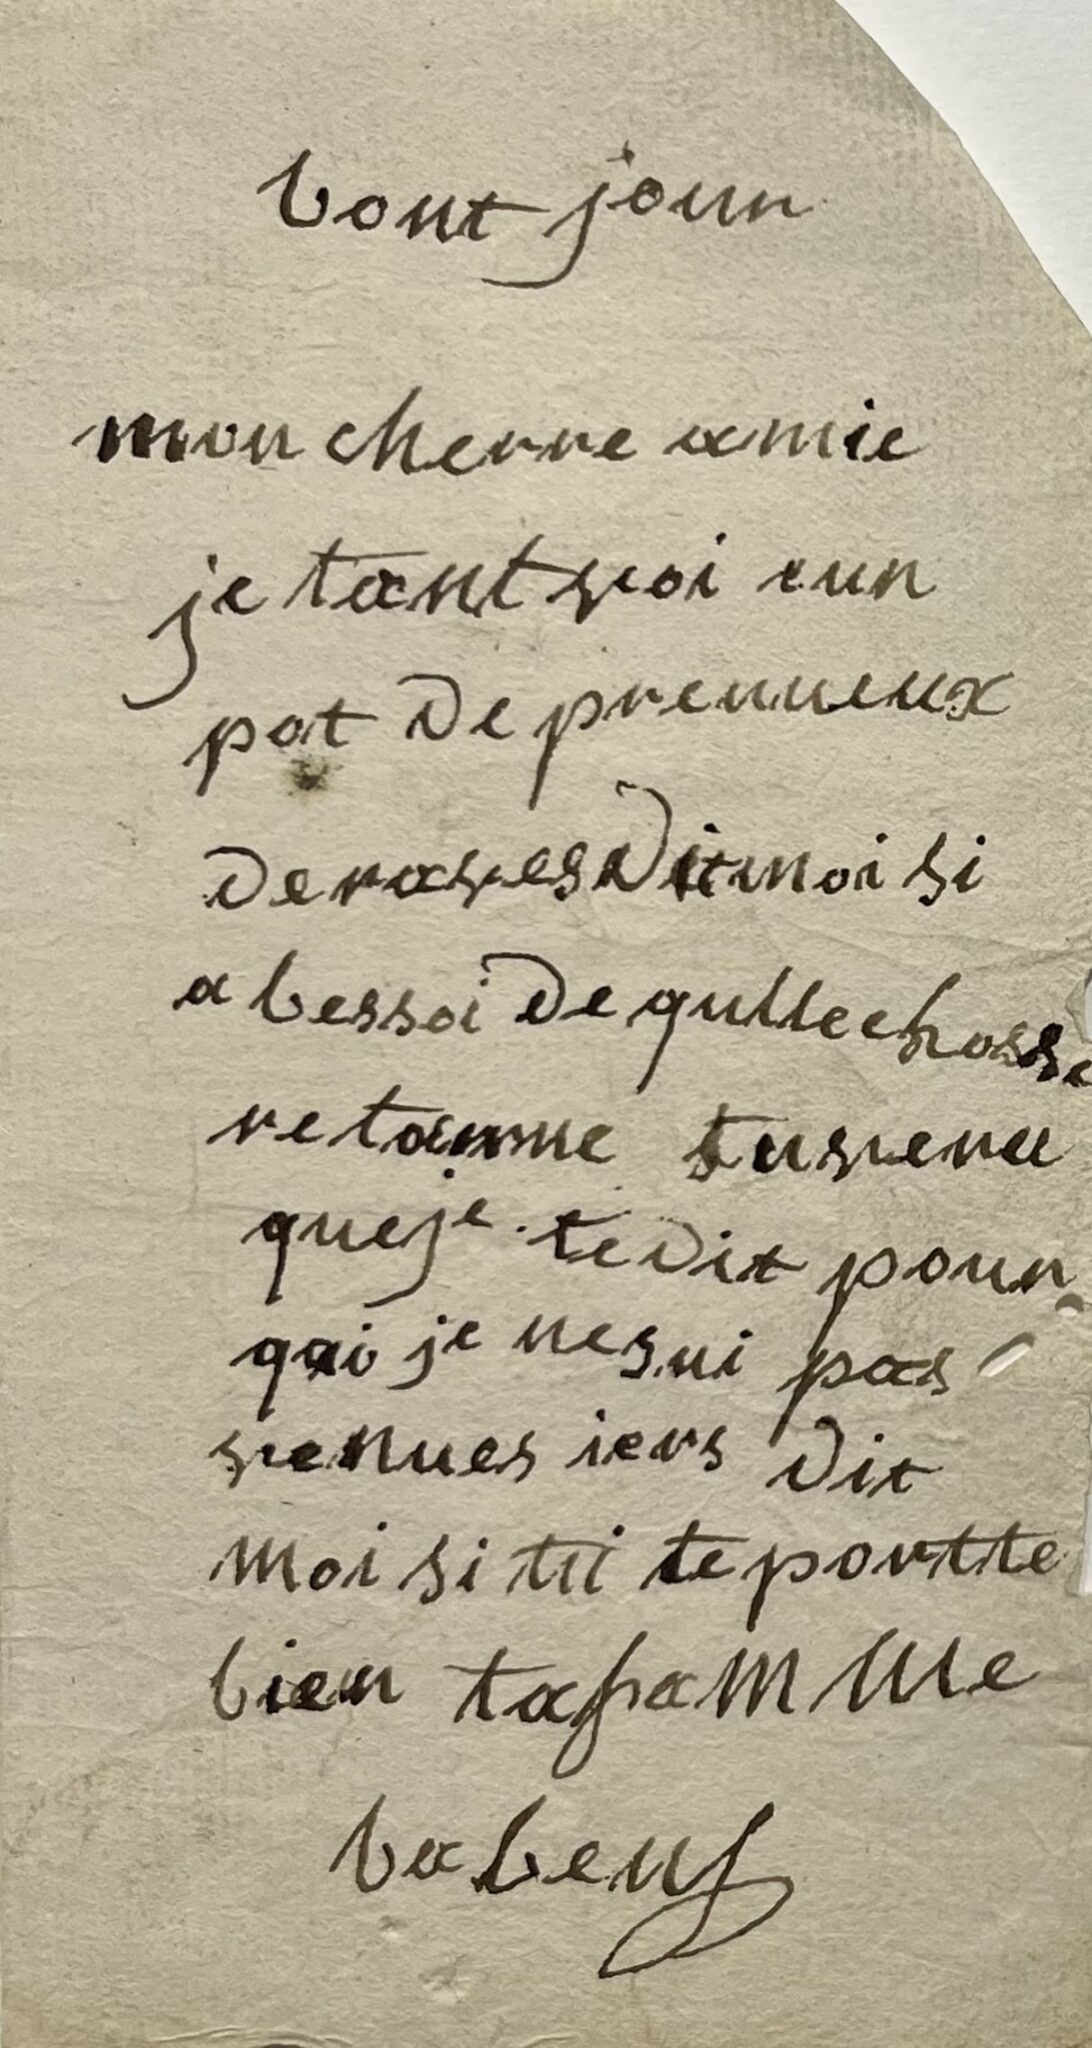 bont jour
mon cherre amie
je tant voi eun
pot de prenueux
de rasves dit moi si
a bessoi de qullechosse
retanne tu vera
que je te dit pour
qoi je ne sui pas
venues iers dit
moi si tu te portte
bien ta famille
babeuf